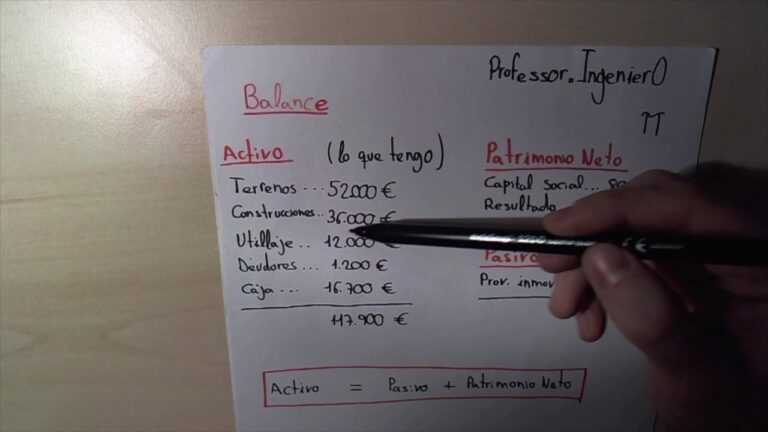 Professor.IngenierO
Balance
Activo (lo que tengo)
Terrenos ... 52.000 €
Construcciones.. 36.000 €
Utillaje .. 12.000 €
Deudores ... 1.200 €
Caja ... 16.700 €
117.900 €
Patrimonio Neto
Capital social...
Resultado
Pasivo
Prov. inmov
Activo = Pasivo + Patrimonio Neto